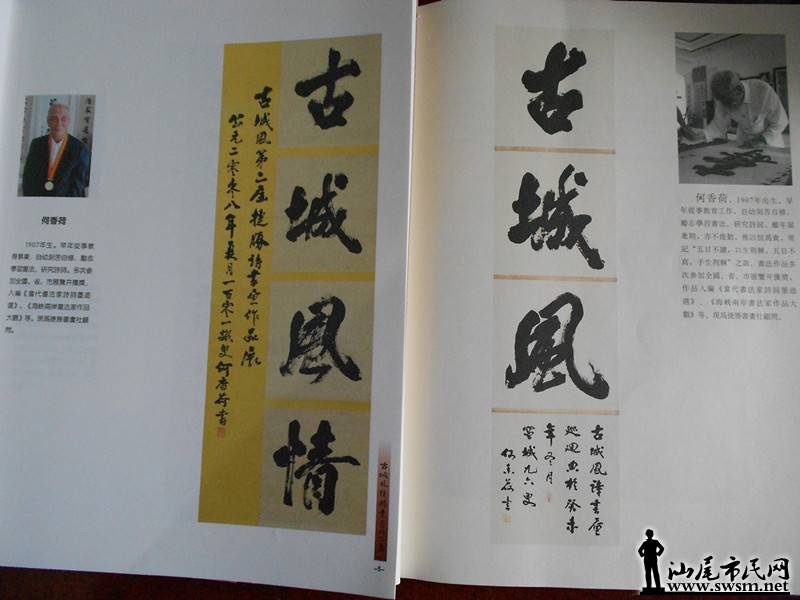 何香荷
1907年生。早年從事教
育事業，自幼刻苦自修，勵志
學習書法，研究詩詞。多次參
加全國、省、市展覽并獲獎，
入編《當代書法家詩詞墨迹
選》、《海峽兩岸書法家作品
大觀》等。現爲捷勝書畫社顧
問。
古城風情
古城風第二屆捷勝詩書画作品展
公元二零零八年夏月一百零一歲叟何香荷書
-5-
古城風
古城風詩書画
年冬月
望城九六叟
何香荷書
何香荷，1907年出生，早
年從事教育工作，自幼刻苦自修，
勵志學習書法，研究詩詞，雖年届
記“五日不讀，口生荆棘，五日不
寫，手生荆棘”之訓，書法作品多
次參加全國、省、市展覽并獲獎，
作品入編《當代書法家詩詞墨迹
選》、《海峽兩岸書法家作品大
觀》等，現爲捷勝書畫社顧問。
汕尾市民网
www.swsm.net